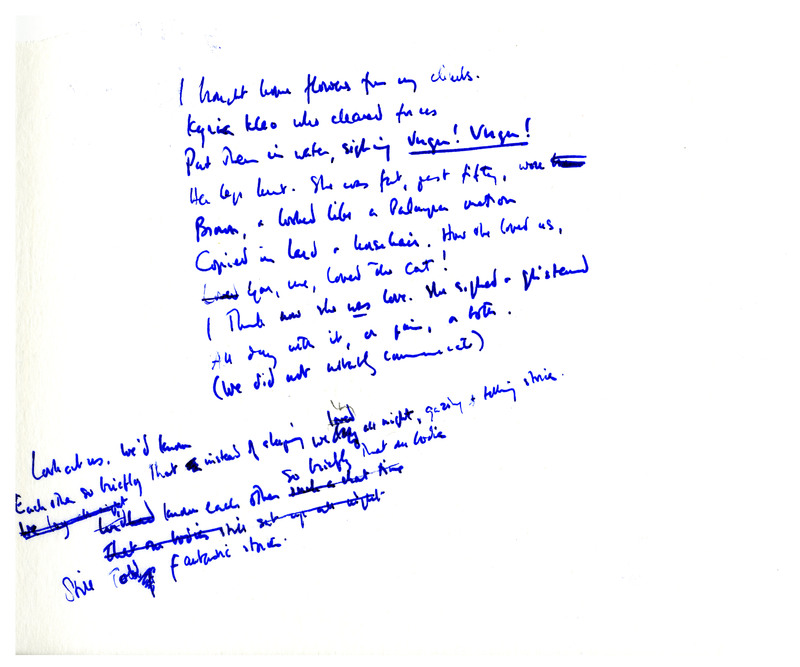 I brought home flowers from my climbs.
Kyria Kleo who cleaned for us
Put them in water, sighing Virgin! Virgin!
Her legs hurt. She was fat, past fifty, wore
Brown, & looked like a Palmyra matron
Copied in lard & horsehair. How she loved us,
Loved You, me, loved the cat!
I Think now she was love. She sighed & glistened
All day with it, or pain, or both.
(We did not notably communicate)
Look at us. We'd known
Each other so briefly that instead of sleeping we loved all night, gazing + telling stories.
We lay
known each other so briefly that our bodies
such a short time
That our bodies still sat up all night
Still Told fantastic stories.